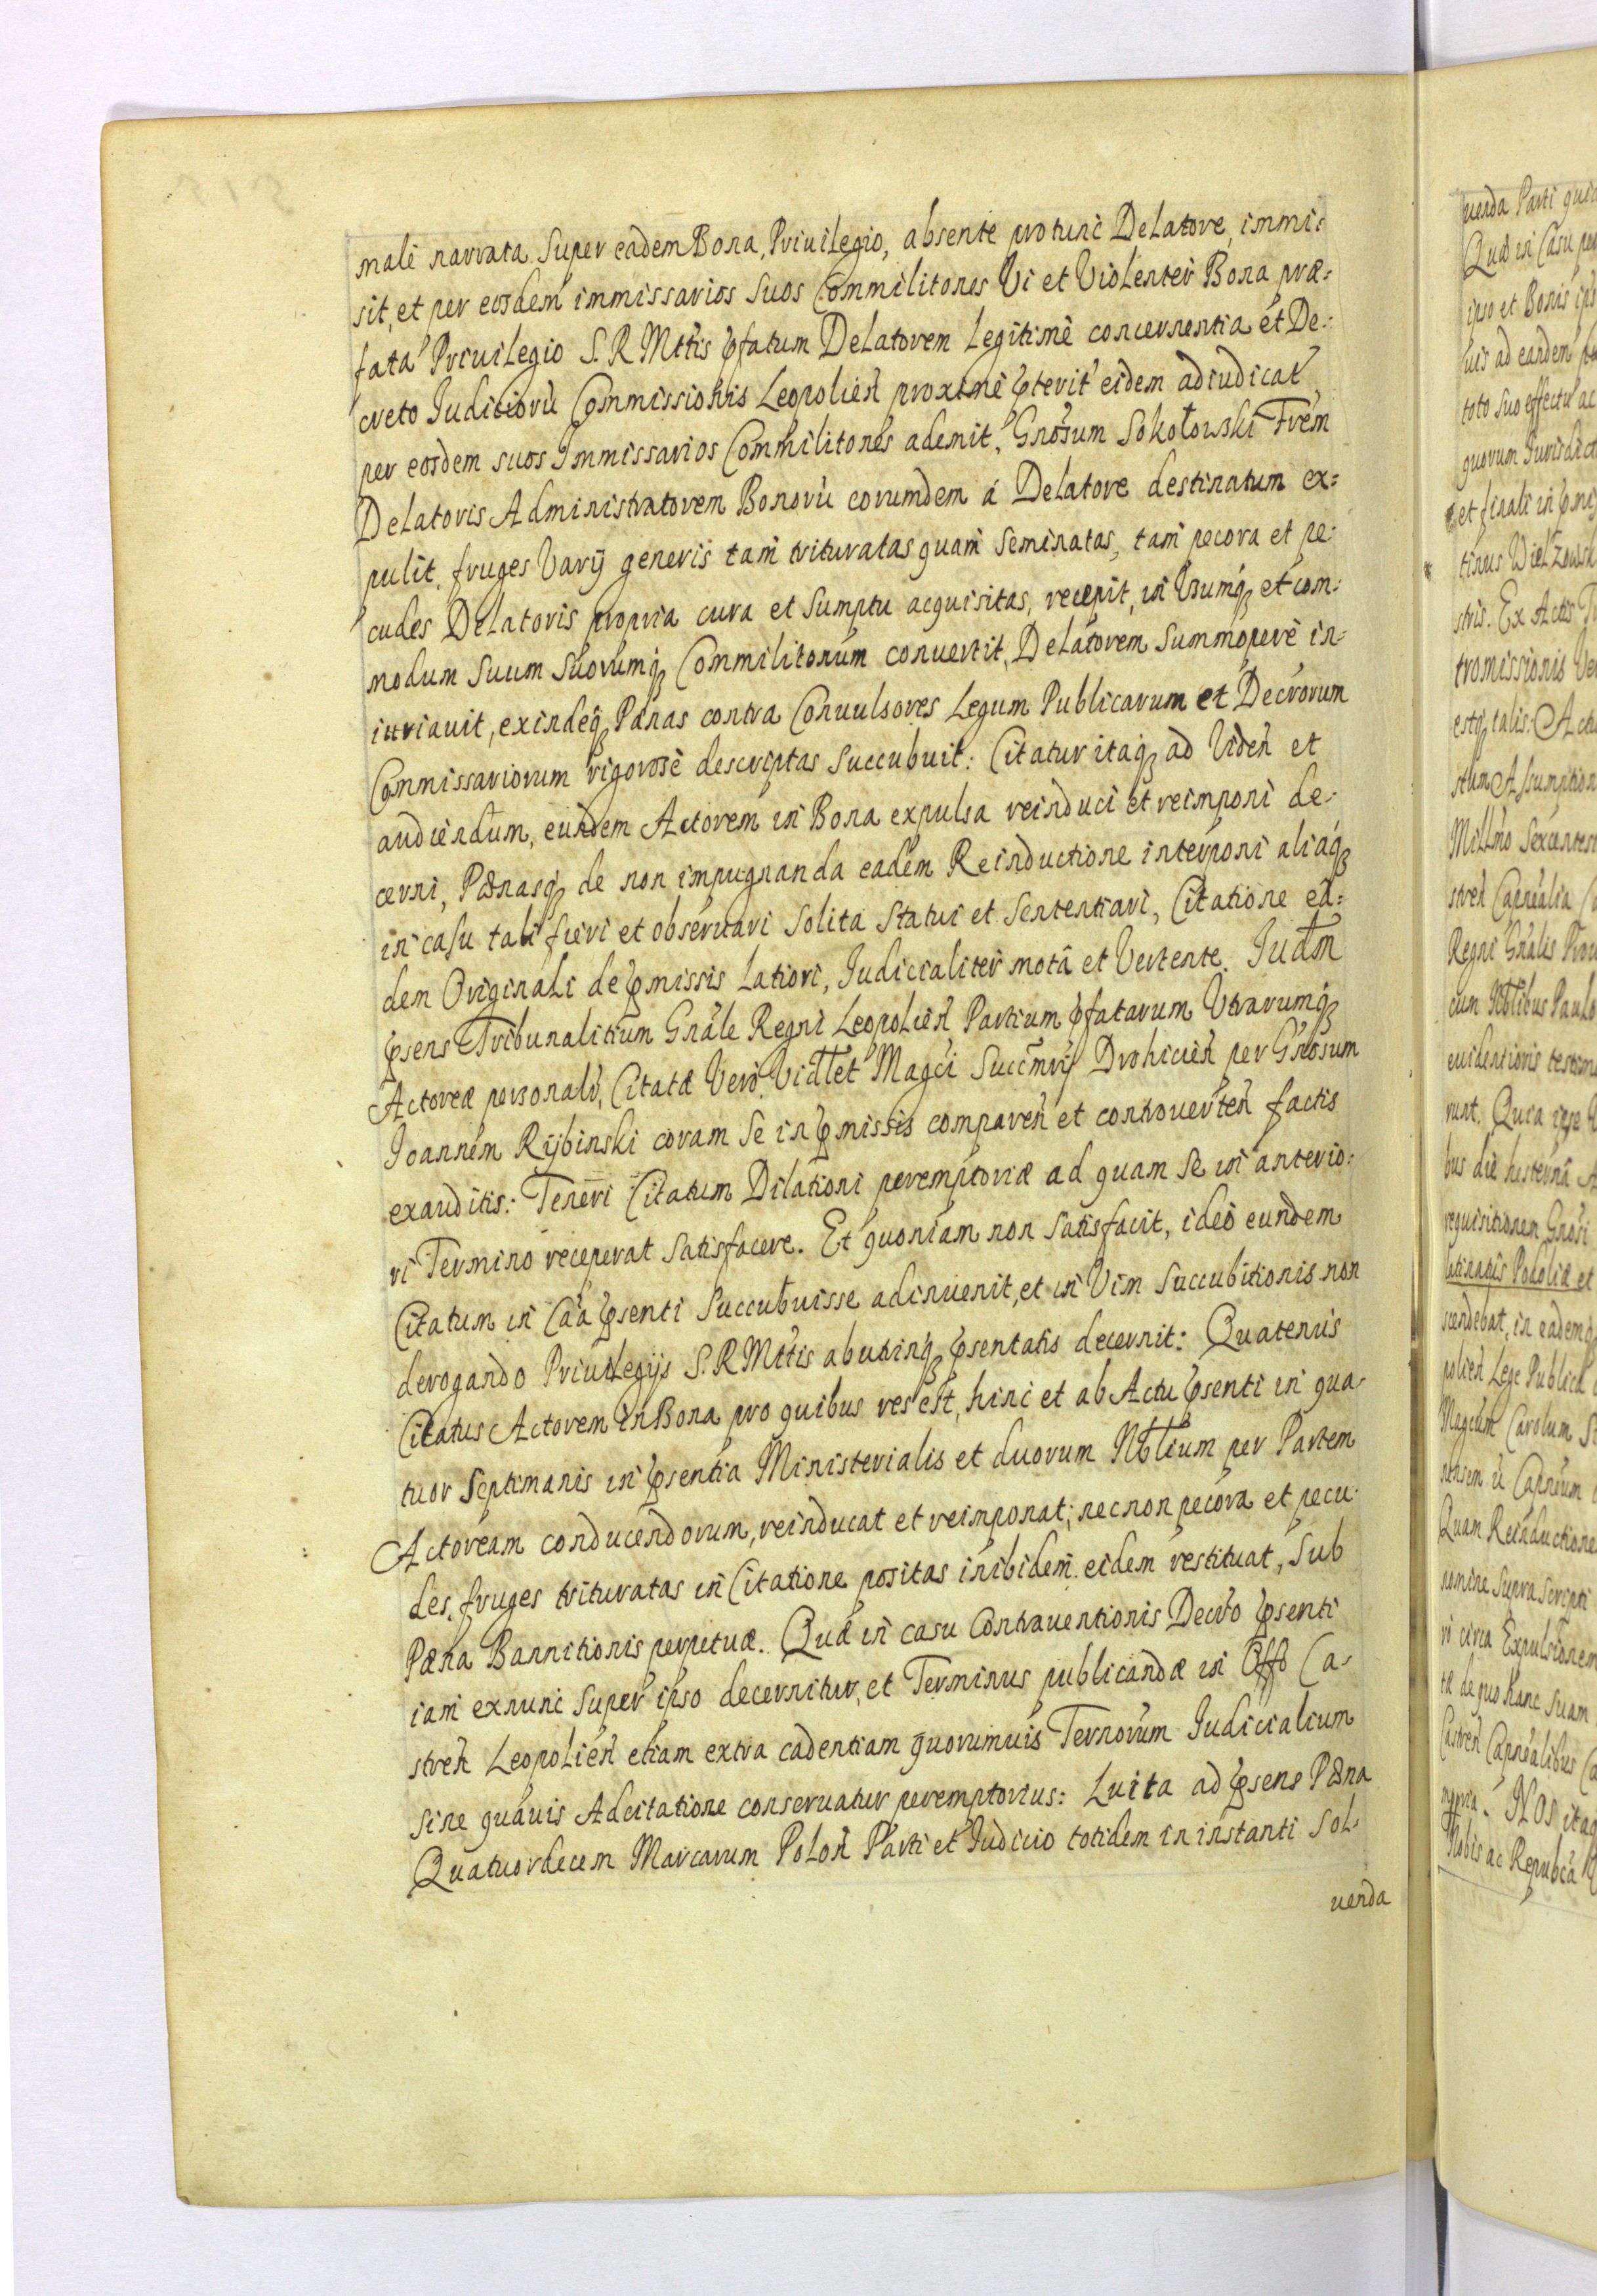 male narrata super eadem Bona, Priuilegio, absente protunc Delatore, immi:
sit, et per eosdem immissarios suos Commilitones Vi et Violenter Bona præ:
fata Priuilegio S. R. Mttis ꝓfatum Delatorem Legitimè concernentia et De:
creto Juditiorũ Commissionis Leopolień proximè ꝓterit eidem adiudicat
per eosdem suos Immissarios Commilitones ademit, Gnosum Sokołowski Frem
Delatoris Administratorem Bonorũ eorumdem á Delatore destinatum ex:
pulit, fruges Varij generis tam trituratas quam seminatas, tam pecora et pe:
cudes Delatoris propria cura et sumptu acquisitas, recepit, in Usumqꝫ et com:
modum suum suorumqꝫ Commilitonum conuertit, Delatorem summopere in:
iuriauit, exindeqꝫ Pænas contra Conuulsores Legum Publicarum et Decrorum
Commissariorum rigorosè descriptas succubuit: Citatur itaqꝫ ad Videń et
audiendum, eundem Actorem in Bona expulsa reinduci et reimponi de:
cerni, Pænasqꝫ de non impugnanda eadem Reinductione interponi aliaqꝫ
in casu tali fieri et obseruari solita statui et sententiari, Citatione ea:
dem Originali de ꝓmissis latiori, Judicialiter motâ et Vertente. Judm
ꝓsens Tribunalitium Gnâle Regni Leopolień Partium ꝓfatarum Utrarumqꝫ
Actoreæ personalr, Citatæ Vero Vidlet Magci Succmrij Drohicień per Gnosum
Joannem Rijbinski coram se in ꝓmissis compareń et controuerteń factis
exauditis: Teneri Citatum Dilationi peremptoriæ ad quam se in anterio:
ri Termino receperat satisfacere. Et quoniam non satisfacit, ideo eundem
Citatum in Caa ꝓsenti succubuisse adinuenit, et in Vim succubitionis non
derogando Priuilegijs S. R. Mttis abutrinqꝫ ꝓsentatis decernit: Quatenus
Citatus Actorem in Bona pro quibus res est, hinc et ab Actu ꝓsenti in qua:
tuor septimanis in ꝓsentia Ministerialis et duorum Nblium per Partem
Actoream conducendorum, reinducat et reimponat; necnon pecora et pecu:
des, fruges trituratas in Citatione positas inibidem eidem restituat, sub
Pæna Bannitionis perpetuæ. Quæ in casu Contrauentionis Decrto ꝓsenti
iam exnunc super ipso decernitur, et Terminus publicandæ in Offo Ca:
streń Leopolień etiam extra cadentiam quorumuis Ternorum Judicialium
sine quauis Adcitatione conseruatur peremptorius: Luita ad ꝓsens Pæna
Quatuordecem Marcarum Poloń Parti et Judicio totidem in instanti sol:
uenda
uenda Parti
Quæ in Casu
ipso et Bonis
uis ad eandem
toto suo effectu ac
quorum
et finali in
tinus
stris. Ex Actis
tromissionis
estqꝫ talis:
Millmo
streń
Regni Gnâlis
cum Nblibus Paulo
euidentioris
runt. Quia
bus die hesterna
requisitionem Gnosi
latinatis Podoliæ et
scendebat, in eademqꝫ
polień Lege Publica
Magcum Carolum
Quam Reinductione
nomine supra scripti
ri circa Expulsionem
tæ de quo hanc suam
Nos itaqꝫ
Nobis ac